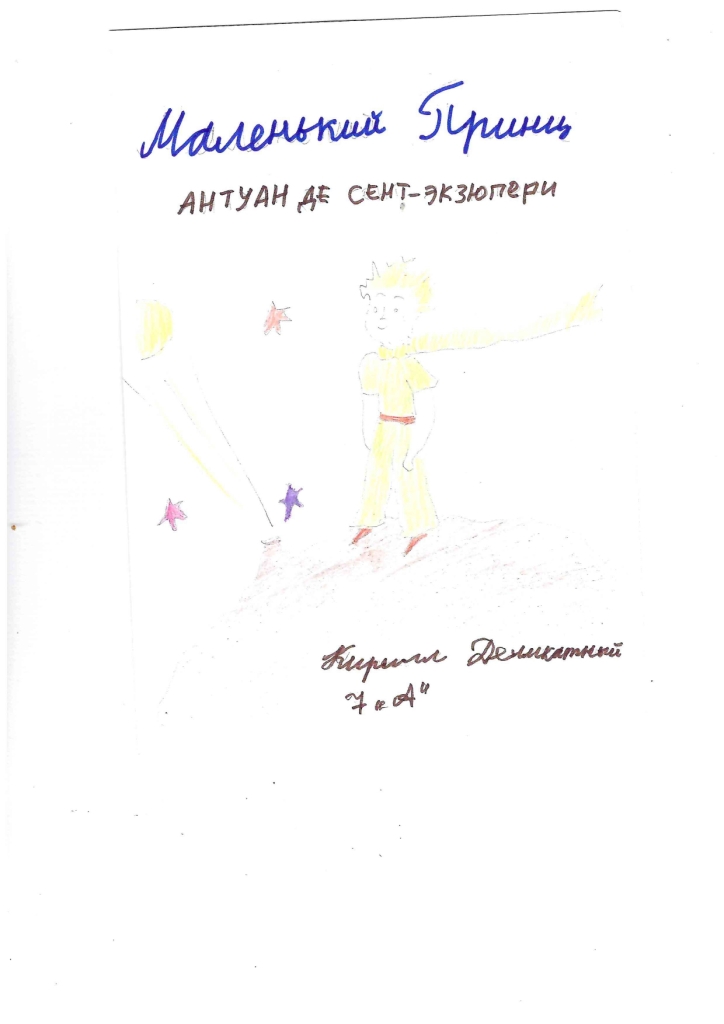 Маленький Принц
АНТУАН ДЕ СЕНТ-ЭКЗЮПЕРИ
Кирилл Деликатный
7 „А"